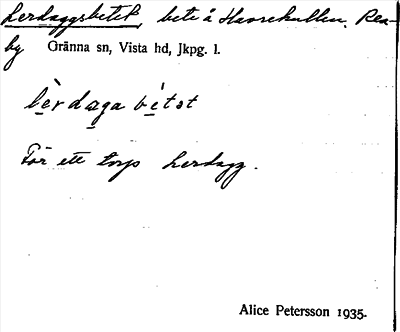 Lerdaggsbetet, bete å Havrekullen. Rea-
by Gränna sn, Vista hd, Jkpg. l.
lèrdaga bètət
För ett torp Lerdagg.
Alice Petersson 1935.